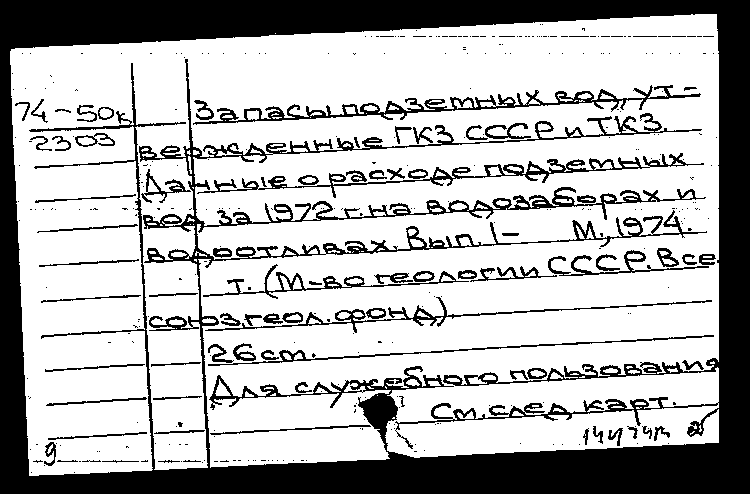 74-50к Запасы подземных вод, ут-
2303 вержденные ГКЗ СССР и ТКЗ.
Данные о расходе подземных
вод за 1972 г. на водозаборах и
водоотливах. Вып. 1- М., 1974.
т. (М-во геологии СССР. Все
союз. геол. фонд).
26 cm.
Для служебного пользования
См. след. карт.
9